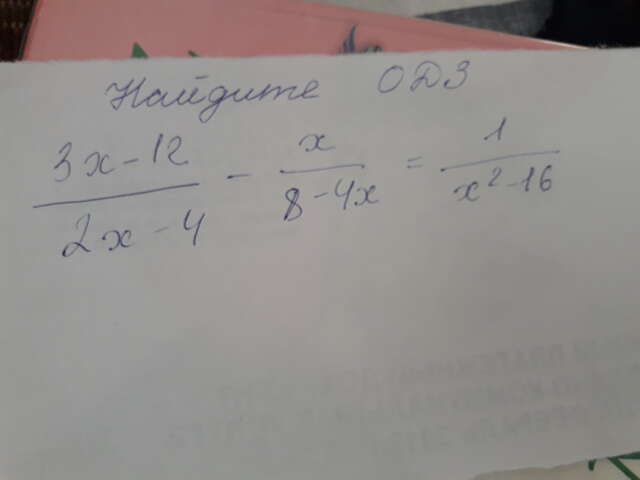 Найдите ОДЗ
3x-12 / 2x-4 - x / 8-4x = 1 / x²-16